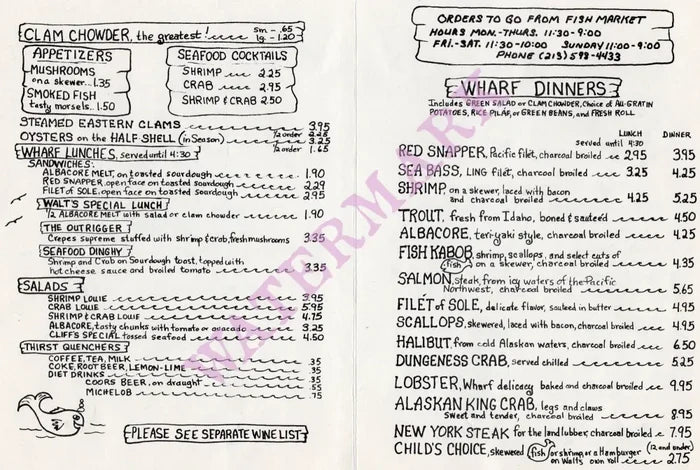 CLAM CHOWDER, the greatest! sm - .65
lg - 1.20
APPETIZERS
MUSHROOMS
on a skewer.. 1.35
SMOKED FISH
tasty morsels.. 1.50
SEAFOOD COCKTAILS
SHRIMP 2.25
CRAB 2.95
SHRIMP & CRAB 2.50
STEAMED EASTERN CLAMS 3.95
1/2 order
OYSTERS on the HALF SHELL (in Season) 3.25
1/2 order 1.65
WHARF LUNCHES, served until 4:30
SANDWICHES:
ALBACORE MELT, on toasted sourdough 1.90
RED SNAPPER, open face on toasted sourdough 2.29
FILET of SOLE, open face on toasted sourdough 2.95
WALT'S SPECIAL LUNCH
1/2 ALBACORE MELT with salad or clam chowder 1.90
THE OUTRIGGER
Crepes supreme stuffed with shrimp & crab, fresh mushrooms 3.35
SEAFOOD DINGHY
Shrimp and Crab on Sourdough toast, topped with
hot cheese sauce and broiled tomato 3.35
SALADS
SHRIMP LOUIE 3.95
CRAB LOUIE 5.95
SHRIMP & CRAB LOUIE 4.75
ALBACORE, tasty chunks with tomato or avocado 3.25
CLIFF'S SPECIAL tossed seafood 4.50
THIRST QUENCHERS
COFFEE, TEA, MILK .35
COKE, ROOT BEER, LEMON-LIME .35
DIET DRINKS .35
COORS BEER, on draught .55
MICHELOB .75
PLEASE SEE SEPARATE WINE LIST
ORDERS TO GO FROM FISH MARKET
HOURS MON.-THURS. 11:30-9:00
FRI.-SAT. 11:30-10:00 SUNDAY 11:00-9:00
PHONE (213) 598-4433
WHARF DINNERS
Includes GREEN SALAD or CLAM CHOWDER, Choice of AU-GRATIN
POTATOES, RICE PILAF, or GREEN BEANS, and FRESH ROLL
LUNCH DINNER
served until 4:30
RED SNAPPER, Pacific filet, charcoal broiled 2.95 3.95
SEA BASS, LING filet, charcoal broiled 3.25 4.25
SHRIMP, on a skewer, laced with bacon
and charcoal broiled 4.25 5.25
TROUT, fresh from Idaho, boned & sauteé'd 4.50
ALBACORE, teri-yaki style, charcoal broiled 4.25
FISH KABOB, shrimp, scallops, and select cuts of
fish on a skewer, charcoal broiled 4.35
SALMON, steak, from icy waters of the Pacific
Northwest, charcoal broiled 5.65
FILÉT of SOLE, delicate flavor, sauteed in butter 4.95
SCALLOPS, skewered, laced with bacon, charcoal broiled 4.95
HALIBUT, from cold Alaskan waters, charcoal broiled 6.50
DUNGENESS CRAB, served chilled 5.25
LOBSTER, Wharf delicacy baked and charcoal broiled 9.95
ALASKAN KING CRAB, legs and claws
Sweet and tender, charcoal broiled 8.95
NEW YORK STEAK for the land lubber, charcoal broiled 7.95
CHILD'S CHOICE, skewered fish or shrimp, or a Hamburger (12 and under)
on Walt's own roll 2.75
WATERMARK